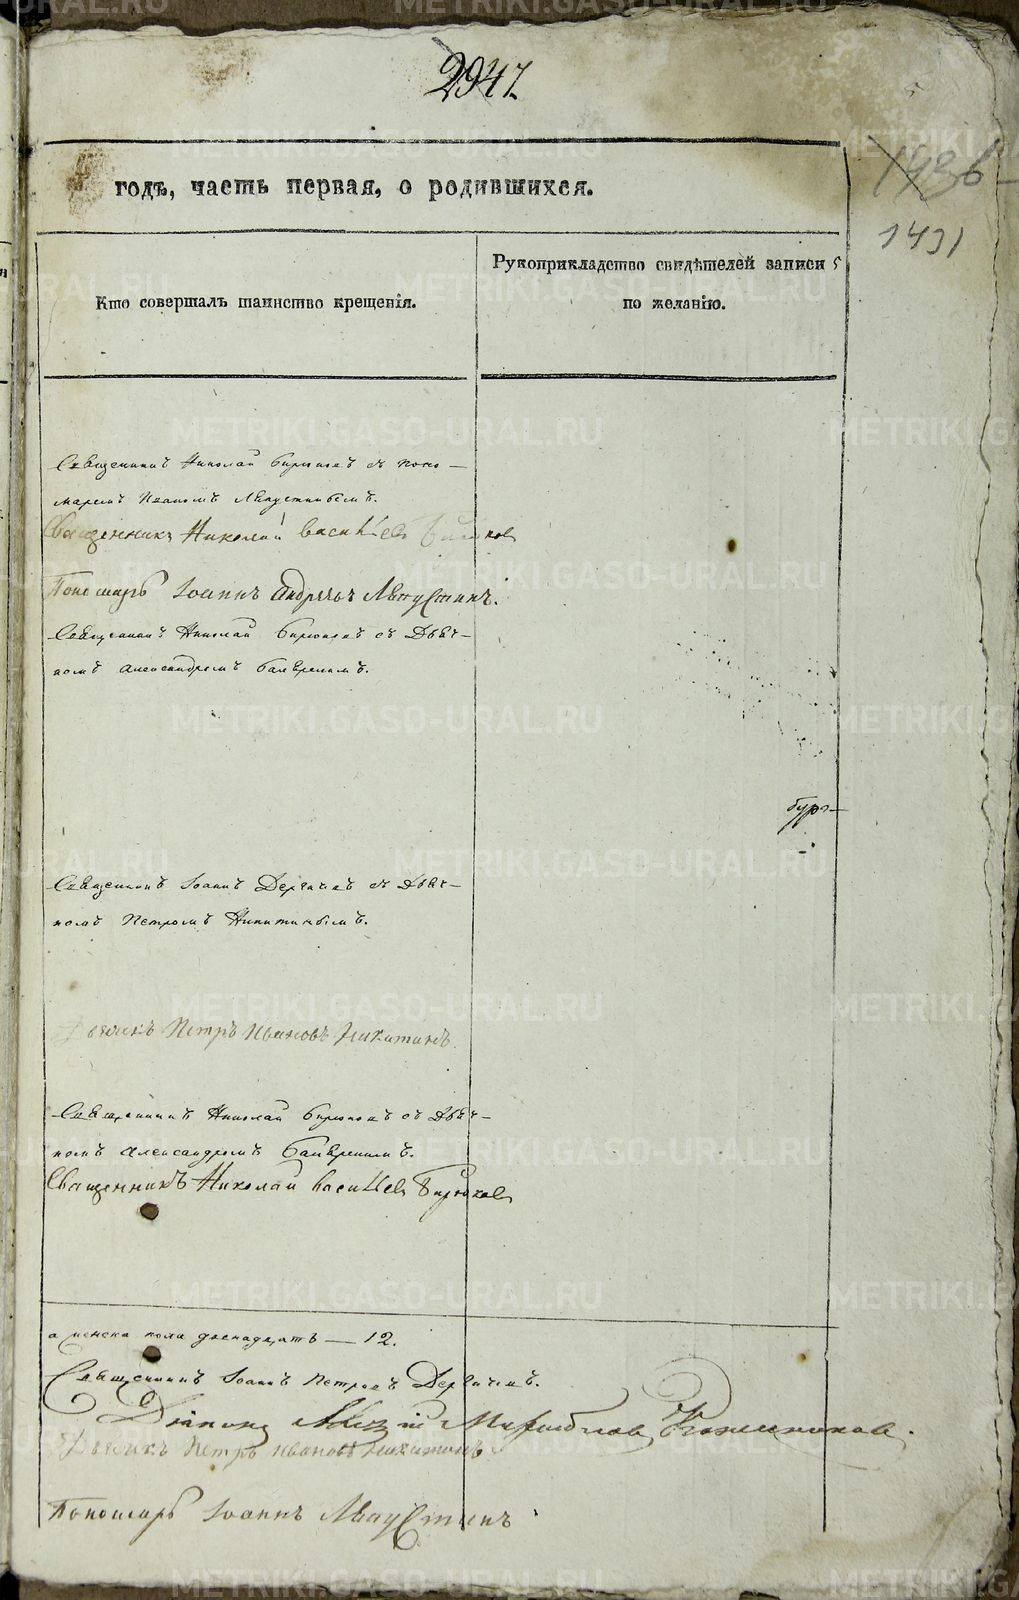 2947
годъ, часть первая, о родившихся.
1431
Кто совершалъ таинство крещенія.
Рукоприкладство свидѣтелей записи
по желанію.
5
Священникъ Николай Бирюковъ съ поно—
маремъ Иваномъ
Священникъ Николай Васильевъ Бирюковъ
Пономарь Іоаннъ Андреевъ
Священникъ Николай Бирюковъ съ Дьяч—
комъ Александромъ
бург—
Священникъ Іоаннъ Дергачевъ съ Дьяч—
комъ Петромъ Никитинымъ.
Дьячикъ Петръ Ивановъ Никитинъ.
Священникъ Николай Бирюковъ съ Дьяч—
комъ Александромъ
Священникъ Николай Васильевъ Бирюковъ
а женска пола двенадцать — 12.
Священникъ Іоаннъ Петровъ Дергачевъ.
Діаконъ
Дьячикъ Петръ Ивановъ Никитинъ
Пономарь Іоаннъ
METRIKI.GASO-URAL.RU